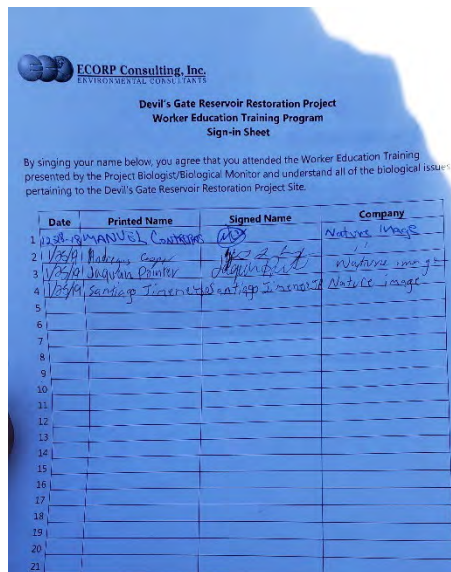 ECORP Consulting, Inc.
ENVIRONMENTAL CONSULTANTS
Devil's Gate Reservoir Restoration Project
Worker Education Training Program
Sign-in Sheet
By singing your name below, you agree that you attended the Worker Education Training
presented by the Project Biologist/Biological Monitor and understand all of the biological issues
pertaining to the Devil's Gate Reservoir Restoration Project Site.
Date Printed Name Signed Name Company
1 MANUEL CONTRERAS Nature Image
2
3 Nature image
4 Santiago Nature image
5
6
7
8
9
10
11
12
13
14
15
16
17
18
19
20
21